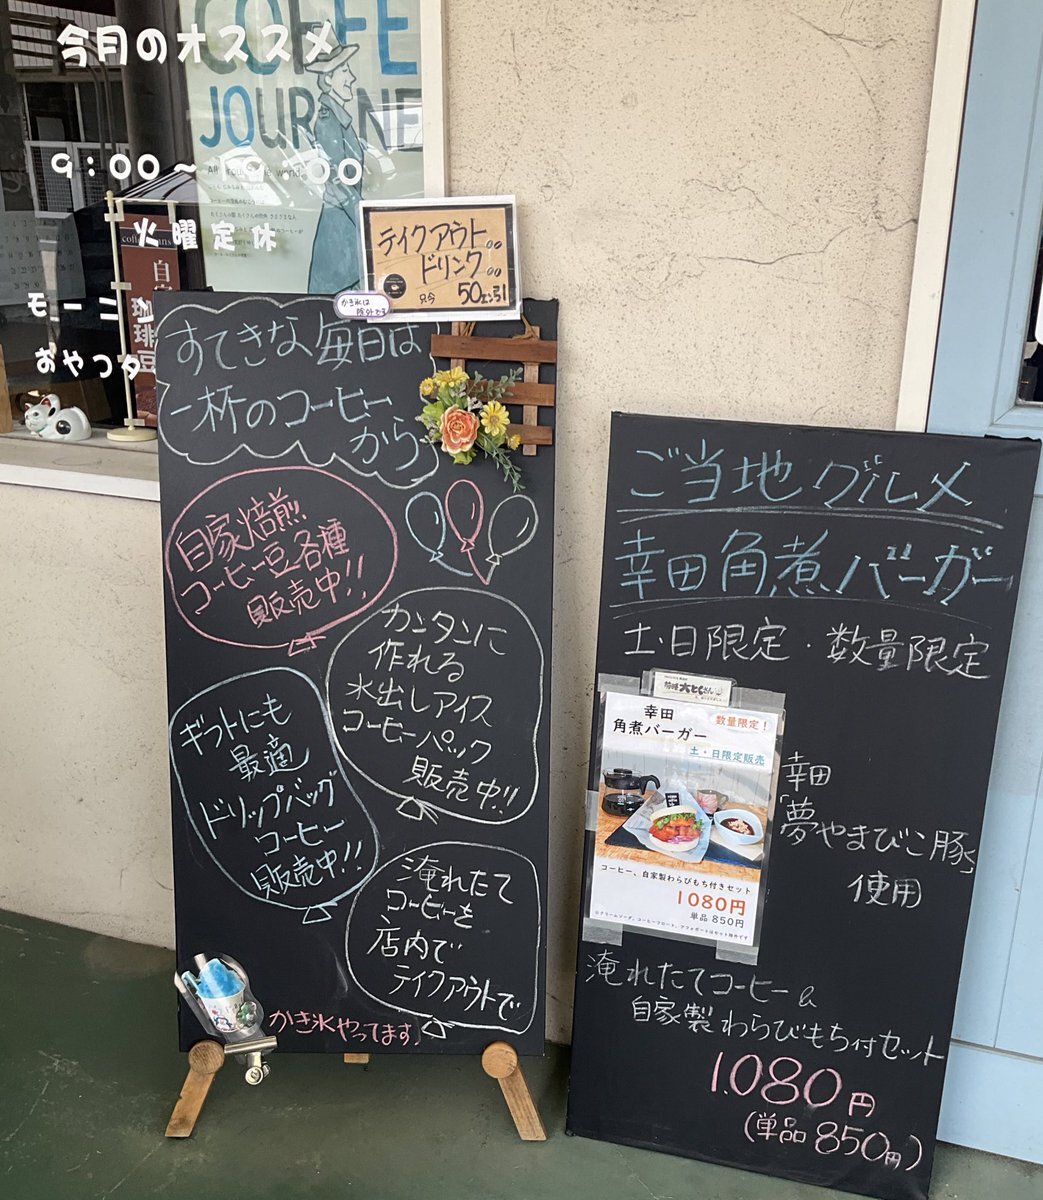 今月のオススメ
9:00～19:00
火曜定休
モーニン
おやつタ
COFFEE
JOUR NE
テイクアウト
ドリンク
只今 50エン引
かき氷は
除外です
すてきな毎日は
一杯のコーヒー
から
自家焙煎
コーヒー豆各種
販売中!!
カンタンに
作れる
水出しアイス
コーヒーパック
販売中!!
ギフトにも
最適
ドリップバッグ
コーヒー
販売中!!
淹れたて
コーヒーを
店内で
テイクアウトで
かき氷やってます♪
ご当地グルメ
幸田角煮バーガー
土・日限定・数量限定
幸田
角煮バーガー
数量限定!
土・日限定販売
コーヒー、自家製わらびもち付きセット
1080円
単品 850円
幸田
「夢やまびこ豚」
使用
淹れたてコーヒー&
自家製わらびもち付セット
1,080円
(単品850円)